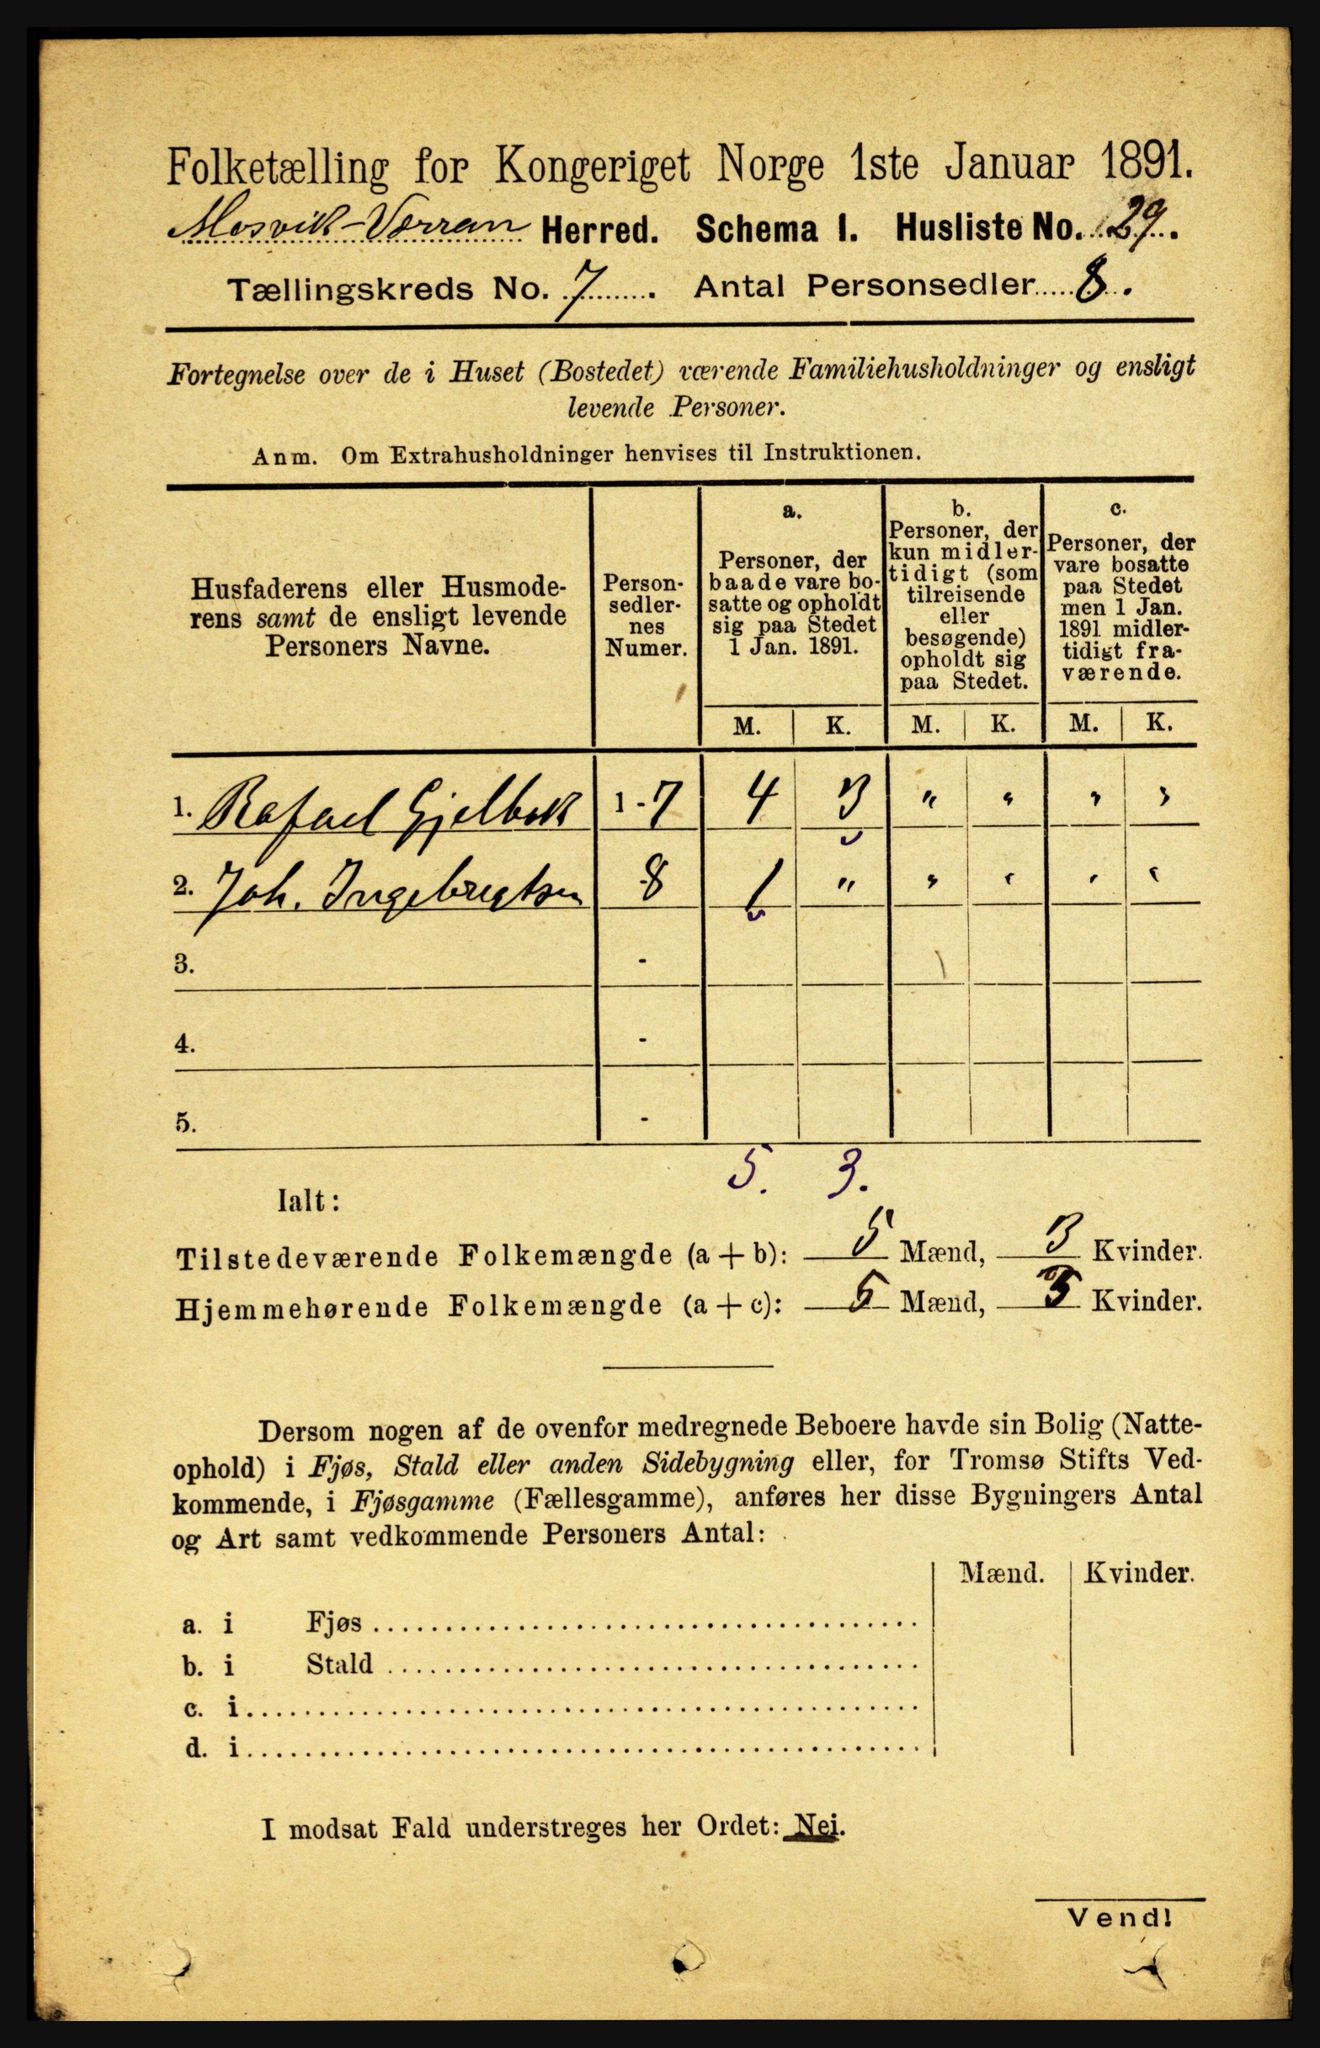 Folketælling for Kongeriget Norge 1ste Januar 1891.
Mosvik-Verran Herred. Schema I. Husliste No. 29.
Tællingskreds No. 7. Antal Personsedler 8.
Fortegnelse over de i Huset (Bostedet) værende Familiehusholdninger og ensligt
levende Personer.
Anm. Om Extrahusholdninger henvises til Instruktionen.
Husfaderens eller Husmode-
rens samt de ensligt levende
Personers Navne.
Person-
sedler-
nes
Numer.
a.
Personer, der
baade vare bo-
satte og opholdt
sig paa Stedet
1 Jan. 1891.
b.
Personer, der
kun midler-
tidigt (som
tilreisende
eller
besøgende)
opholdt sig
paa Stedet.
c.
Personer, der
vare bosatte
paa Stedet
men 1 Jan.
1891 midler-
tidigt fra-
værende.
M. K. M. K. M. K.
1. Rafael Gjelbak 1-7 4 3 " " " "
2. Joh. Ingebrigtsen 8 1 " " " " "
3. -
4. -
5. -
5. 3.
Ialt:
Tilstedeværende Folkemængde (a + b): 5 Mænd, 3 Kvinder.
Hjemmehørende Folkemængde (a + c): 5 Mænd, 3 Kvinder.
Dersom nogen af de ovenfor medregnede Beboere havde sin Bolig (Natte-
ophold) i Fjøs, Stald eller anden Sidebygning eller, for Tromsø Stifts Ved-
kommende, i Fjøsgamme (Fællesgamme), anføres her disse Bygningers Antal
og Art samt vedkommende Personers Antal:
Mænd. Kvinder.
a. i Fjøs
b. i Stald
c. i
d. i
I modsat Fald understreges her Ordet: Nei.
Vend!